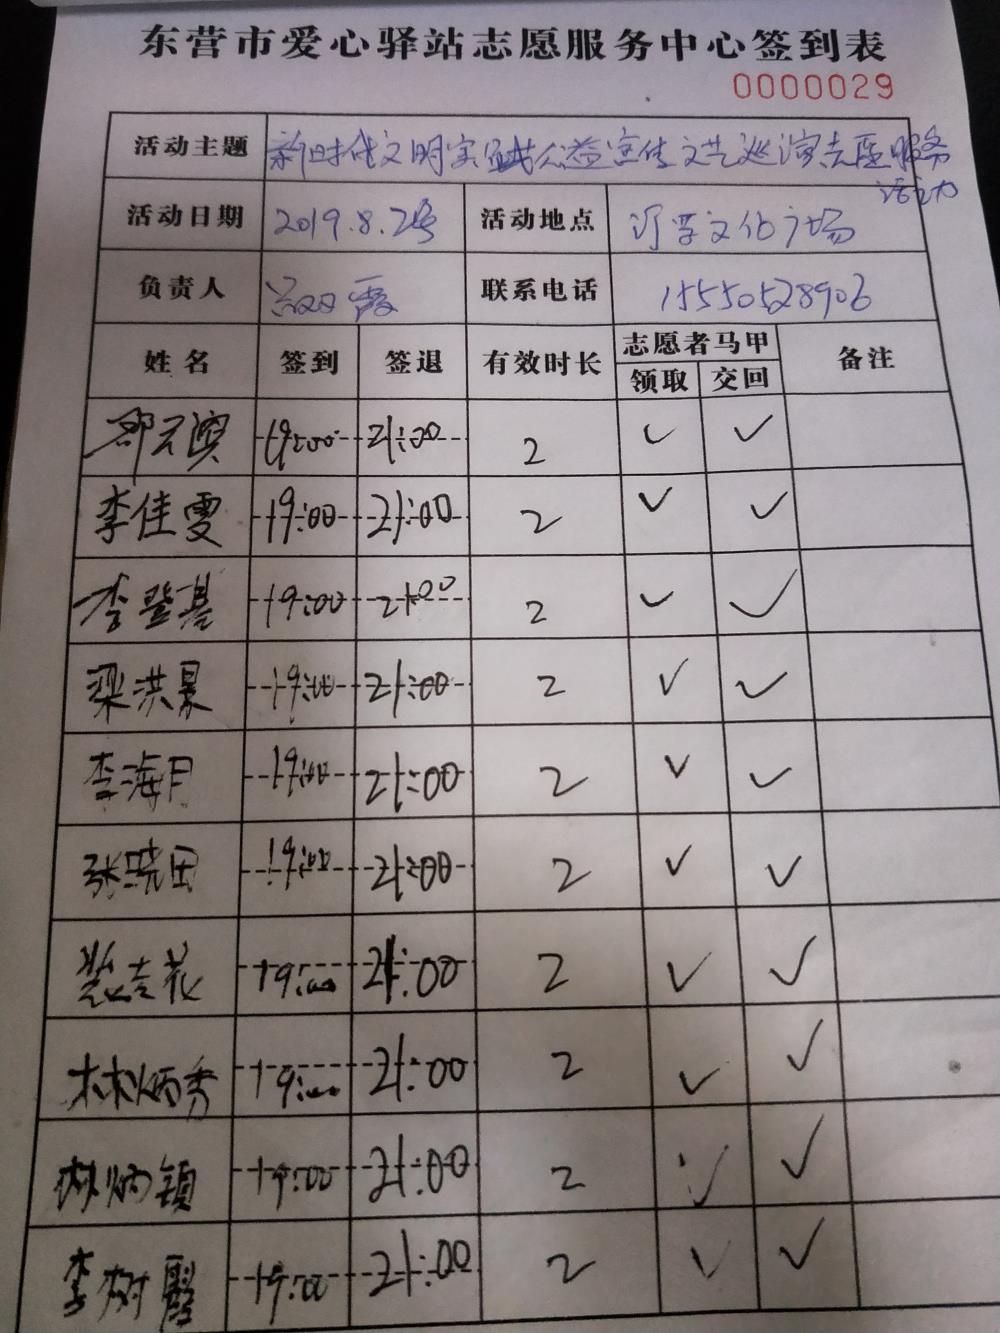 东营市爱心驿站志愿服务中心签到表
0000029
活动主题 新时代文明实践公益宣传文艺巡演志愿服务
活动
活动日期 2019.8.2号 活动地点 文化广场
负责人 霞 联系电话 15550528906
姓名 签到 签退 有效时长 志愿者马甲 备注
领取 交回
19:00 21:00 2 ✓ ✓
李佳雯 19:00 21:00 2 ✓ ✓
李登基 19:00 21:00 2 ✓ ✓
梁洪景 19:00 21:00 2 ✓ ✓
李海月 19:00 21:00 2 ✓ ✓
张晓田 19:00 21:00 2 ✓ ✓
吉花 19:00 21:00 2 ✓ ✓
林炳秀 19:00 21:00 2 ✓ ✓
林炳镇 19:00 21:00 2 ✓ ✓
李树霞 19:00 21:00 2 ✓ ✓